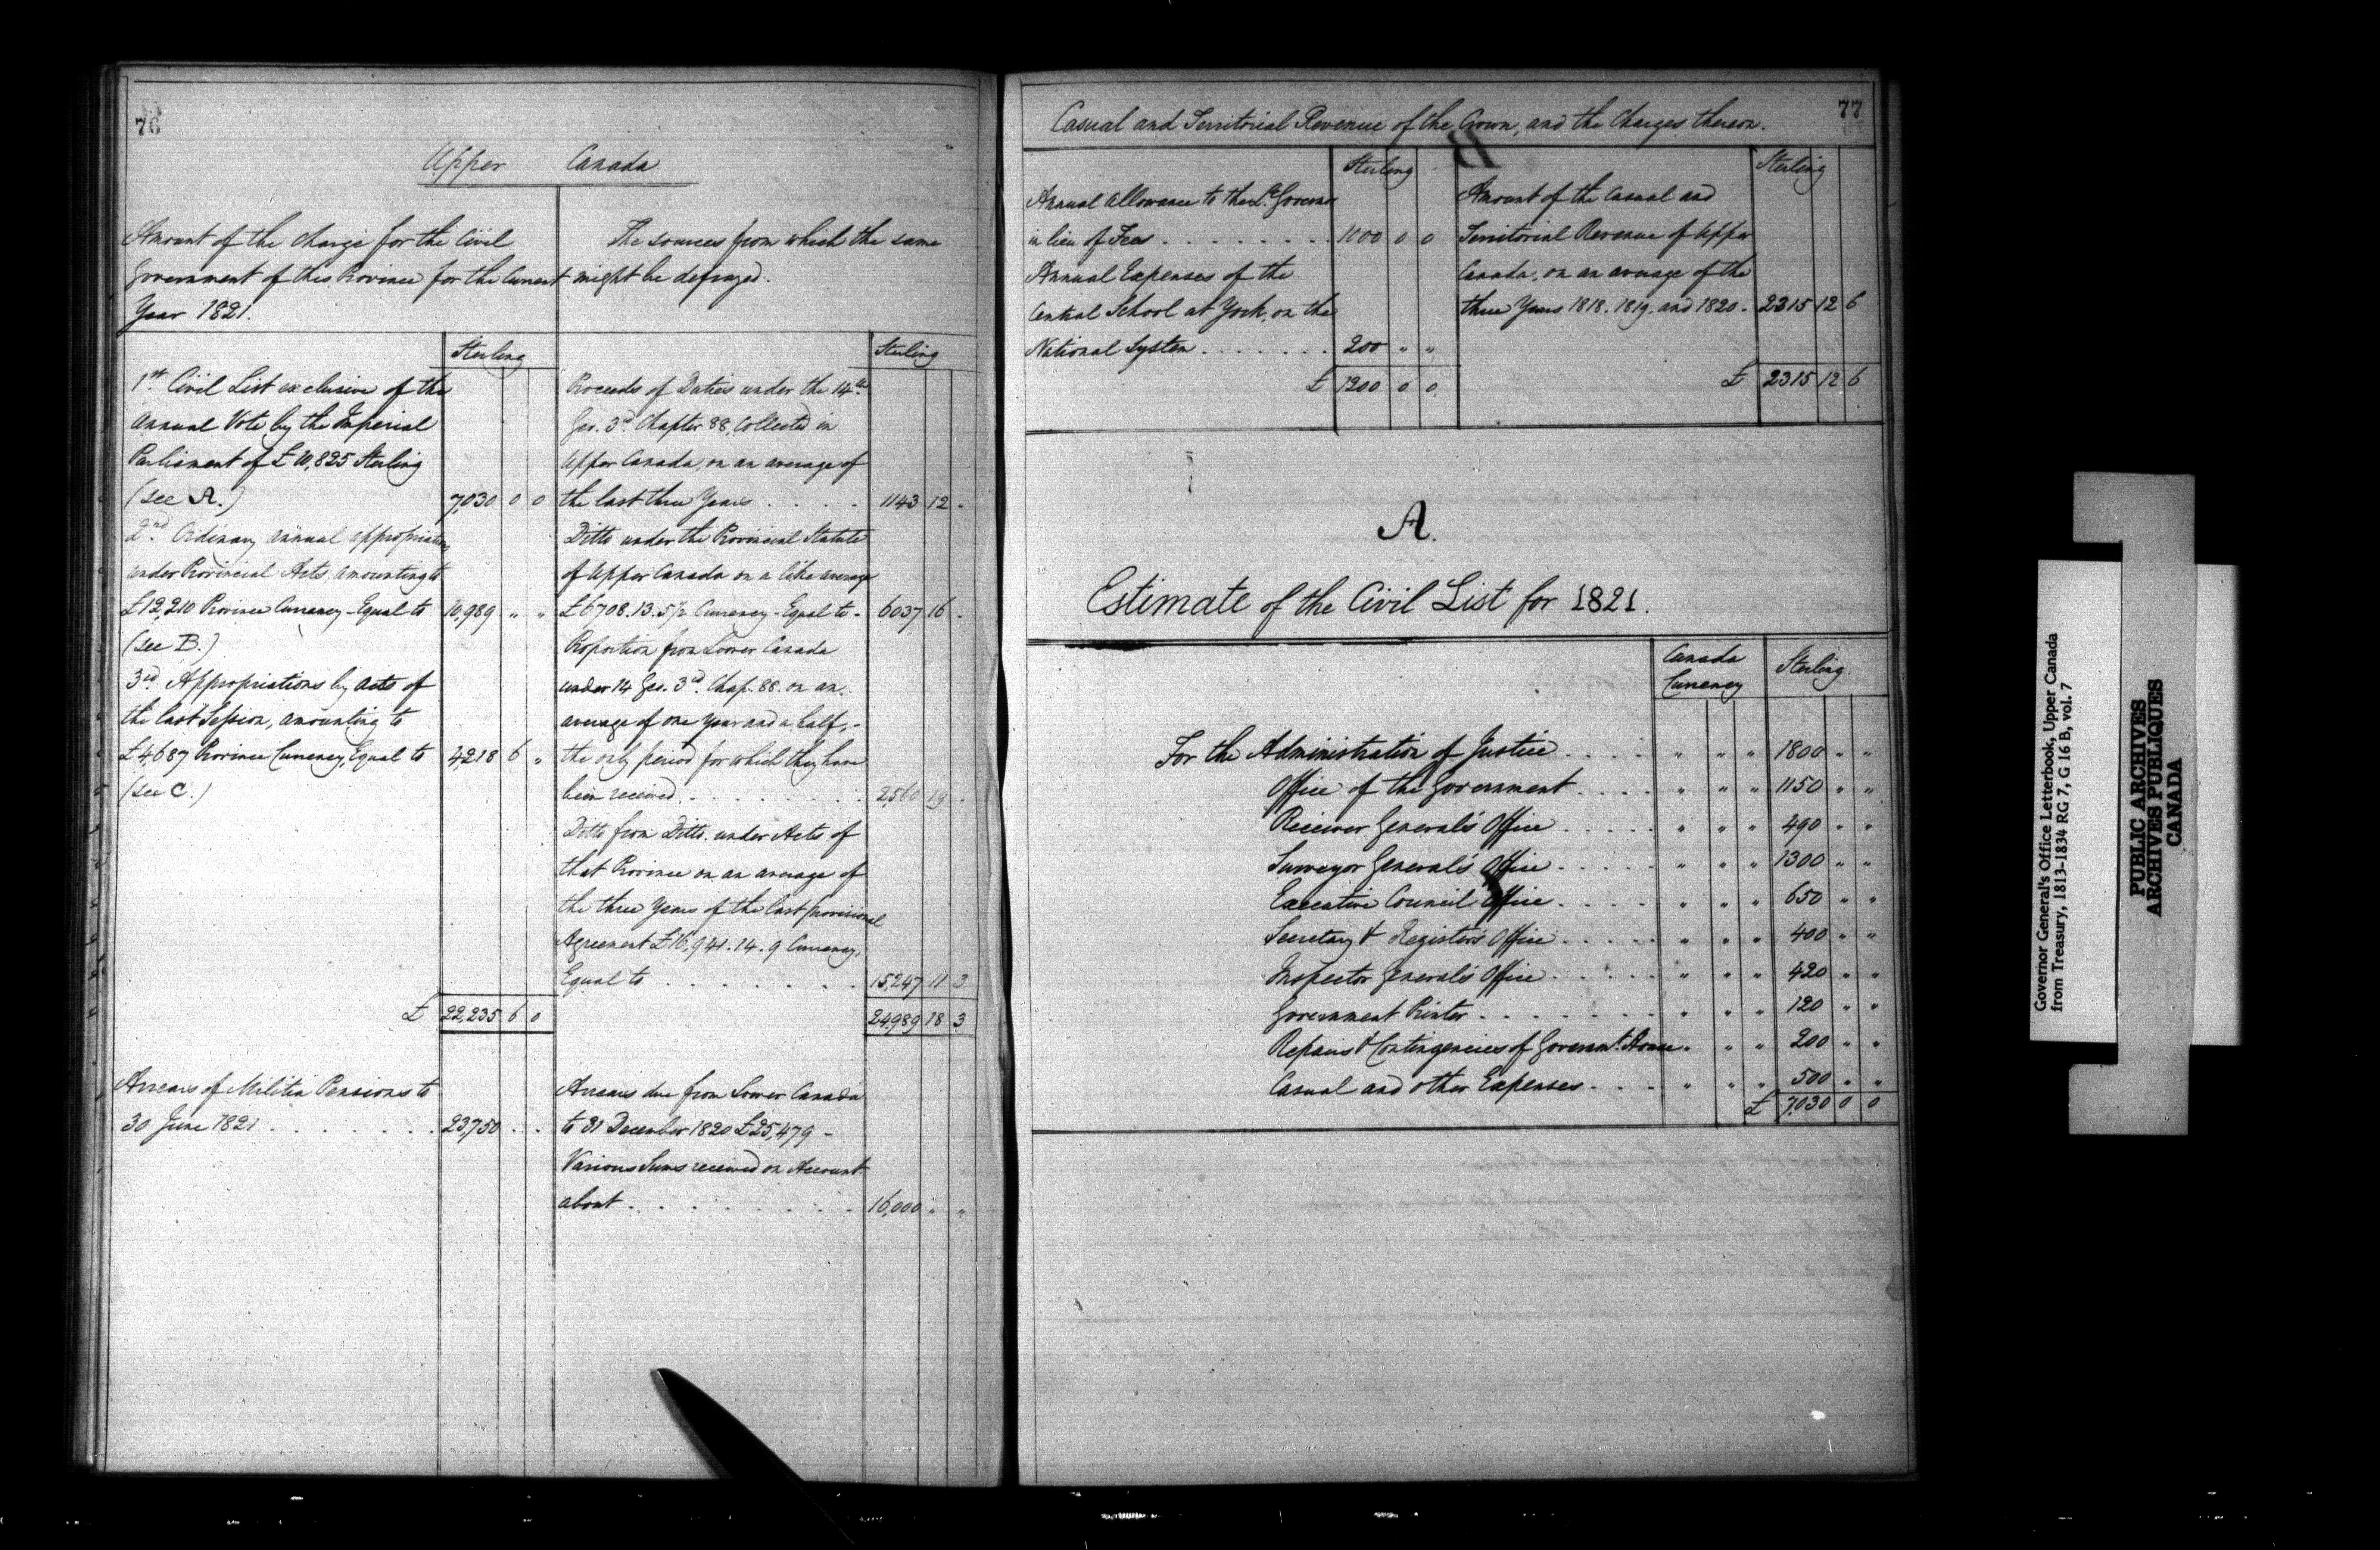 76
Upper Canada
Amount of the charge for the Civil
Government of this Province for the Current
Year 1821.
The sources from which the same
might be defrayed.
Sterling
1st. Civil List exclusive of the
Annual Vote by the Imperial
Parliament of £10,825 Sterling
(see A.) 7,030 0 0
2nd. Ordinary annual appropriations
under Provincial Acts, amounting to
£12,210 Province Currency - Equal to 10,989 " "
(see B.)
3rd. Appropriations by Acts of
the last Session, amounting to
£4687 Province Currency, Equal to 4,218 6 "
(see C.)
£ 22,235 6 0
Arrears of Militia Pensions to
30 June 1821 . . . . . . . 23,750 . .
Sterling
Proceeds of Duties under the 14th.
Geo. 3d. Chapter 88, Collected in
Upper Canada, on an average of
the last three Years . . . . 1143 12 -
Ditto under the Provincial Statute
of Upper Canada on a like average
£6708.13.5½ Currency - Equal to - 6037 16 -
Proportion from Lower Canada
under 14 Geo. 3rd. Chap. 88. on an
average of one Year and a half, -
the only period for which they have
been received . . . . . . . 2,560 19 -
Ditto from Ditto. under Acts of
that Province on an average of
the three Years of the last provisional
Agreement £16,941.14.9 Currency,
Equal to . . . . . . 15,247 11 3
24,989 18 3
Arrears due from Lower Canada
to 31 December 1820 £25,479 -
Various Sums received on Account
about . . . . . . . . 16,000 " "
77
Casual and Territorial Revenue of the Crown, and the Charges thereon.
Sterling
Annual Allowance to the Lt. Governor
in lieu of Fees . . . . . . . . 1000 0 0
Annual Expenses of the
Central School at York, on the
National System . . . . . . . 200 " "
£ 1200 0 0
Sterling
Amount of the Casual and
Territorial Revenue of Upper
Canada, on an average of the
three Years 1818. 1819. and 1820 - 2315 12 6
£ 2315 12 6
A.
Estimate of the Civil List for 1821.
Canada
Currency
Sterling.
For the Administration of Justice . . . . . " " " 1800 " "
Office of the Government . . . . " " " 1150 " "
Receiver General's Office . . . . . " " " 490 " "
Surveyor General's Office . . . . . " " " 1300 " "
Executive Council Office . . . . . " " " 650 " "
Secretary & Register's Office . . . . . " " " 400 " "
Inspector General's Office . . . . . " " " 420 " "
Government Printer . . . . . . . " " " 120 " "
Repairs & Contingencies of Governmt. House " " " 200 " "
Casual and other Expenses . . . . " " " 500 " "
£ 7,030 0 0
Governor General's Office Letterbook, Upper Canada
from Treasury, 1813-1834 RG 7, G 16 B, vol. 7
PUBLIC ARCHIVES
ARCHIVES PUBLIQUES
CANADA